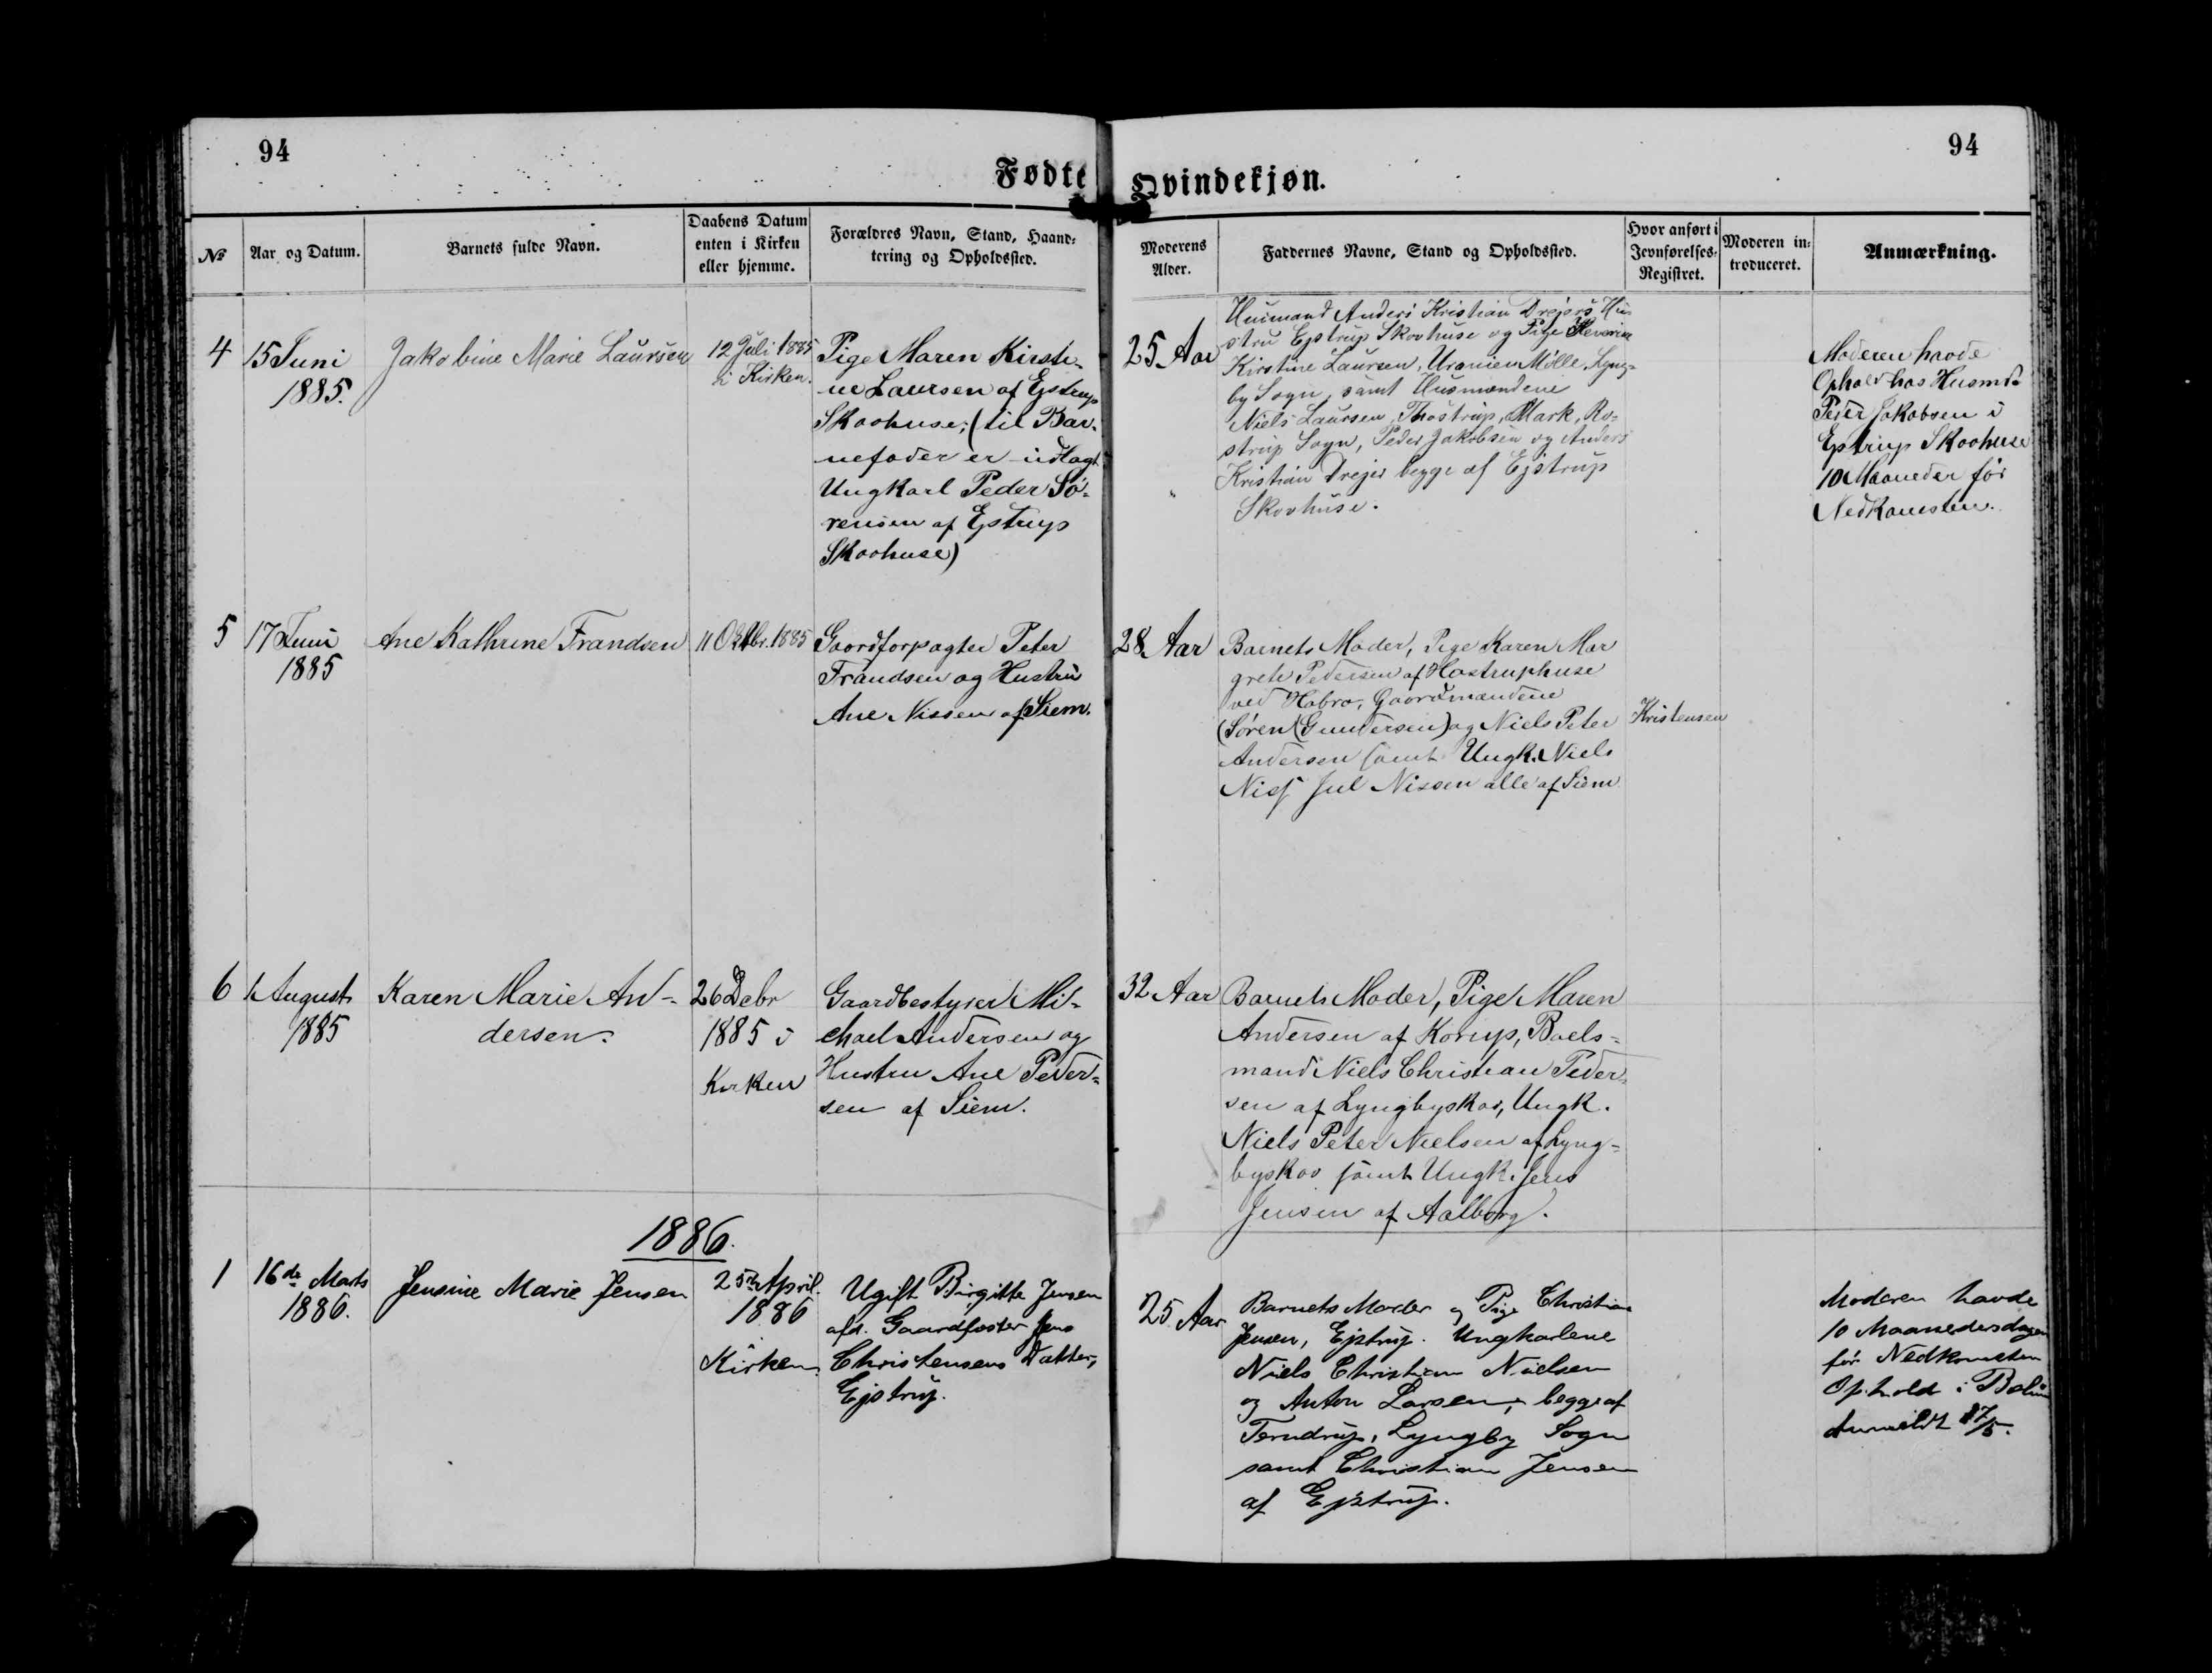 94
94
Fødte
Qvindekjøn.
№
Aar og Datum.
Barnets fulde Navn.
Daabens Datum
enten i Kirken
eller hjemme.
Forældres Navn, Stand, Haand-
tering og Opholdssted.
Moderens
Alder.
Faddernes Navne, Stand og Opholdssted.
Hvor anført i
Jevnførelses-
Registret.
Moderen in-
troduceret.
Anmærkning.
4
15 Juni
1885.
Jakobine Marie Laursen
12 Juli 1885
i Kirken.
Pige Maren Kirsti-
ne Laursen af Ejstrup
Skovhuse, (til Bar-
nefader er udlagt
Ungkarl Peder Sö-
rensen af Ejstrup
Skovhuse)
25 Aar
Husmand Anders Kristian Drejers Hu-
stru Ejstrup Skovhuse og Pige Severine
Kirstine Laursen, Uranien Mölle, Lyng-
by Sogn, samt Husmændene
Niels Laursen, Thostrup Mark, Ro-
strup Sogn, Peder Jakobsen og Anders
Kristian Drejer begge af Ejstrup
Skovhuse.
Moderen havde
Ophold hos Husmd.
Peder Jakobsen i
Ejstrup Skovhuse
10 Maaneder før
Nedkomsten.
5
17 Juni
1885
Ane Kathrine Frandsen
11 Oktbr. 1885
Gaardforpagter Peter
Frandsen og Hustru
Ane Nissen af Siem.
28 Aar
Barnets Moder, Pige Karen Mar
grete Pedersen af Hostruphuse
ved Hobro, Gaardmændene
(Søren (Gundersen) og Niels Peter
Andersen samt Ungk. Niels
Nis Jul Nissen alle af Siem
Kristensen
6
1 August
1885
Karen Marie An-
dersen.
26 Debr
1885 i
Kirken
Gaardbestyrer Mi-
chael Andersen og
Hustru Ane Peder-
sen af Siem.
32 Aar
Barnets Moder, Pige Maren
Andersen af Korup, Boels-
mand Niels Christian Peder-
sen af Lyngbyskov, Ungk.
Niels Peter Nielsen af Lyng-
byskov samt Ungk. Jens
Jensen af Aalborg.
1886.
1
16de Marts
1886.
Jensine Marie Jensen
25de April.
1886
Kirken
Ugift Birgitte Jensen
afd. Gaardfæster Jens
Christensens Datter,
Ejstrup.
25 Aar
Barnets Moder og Pige Christiane
Jensen, Ejstrup. Ungkarlene
Niels Christian Nielsen
og Anton Larsen, begge af
Terndrup, Lyngby Sogn
samt Christian Jensen
af Ejstrup.
Moderen havde
10 Maanedersdagen
før Nedkomsten
Ophold i
Anmeldt 17/5.